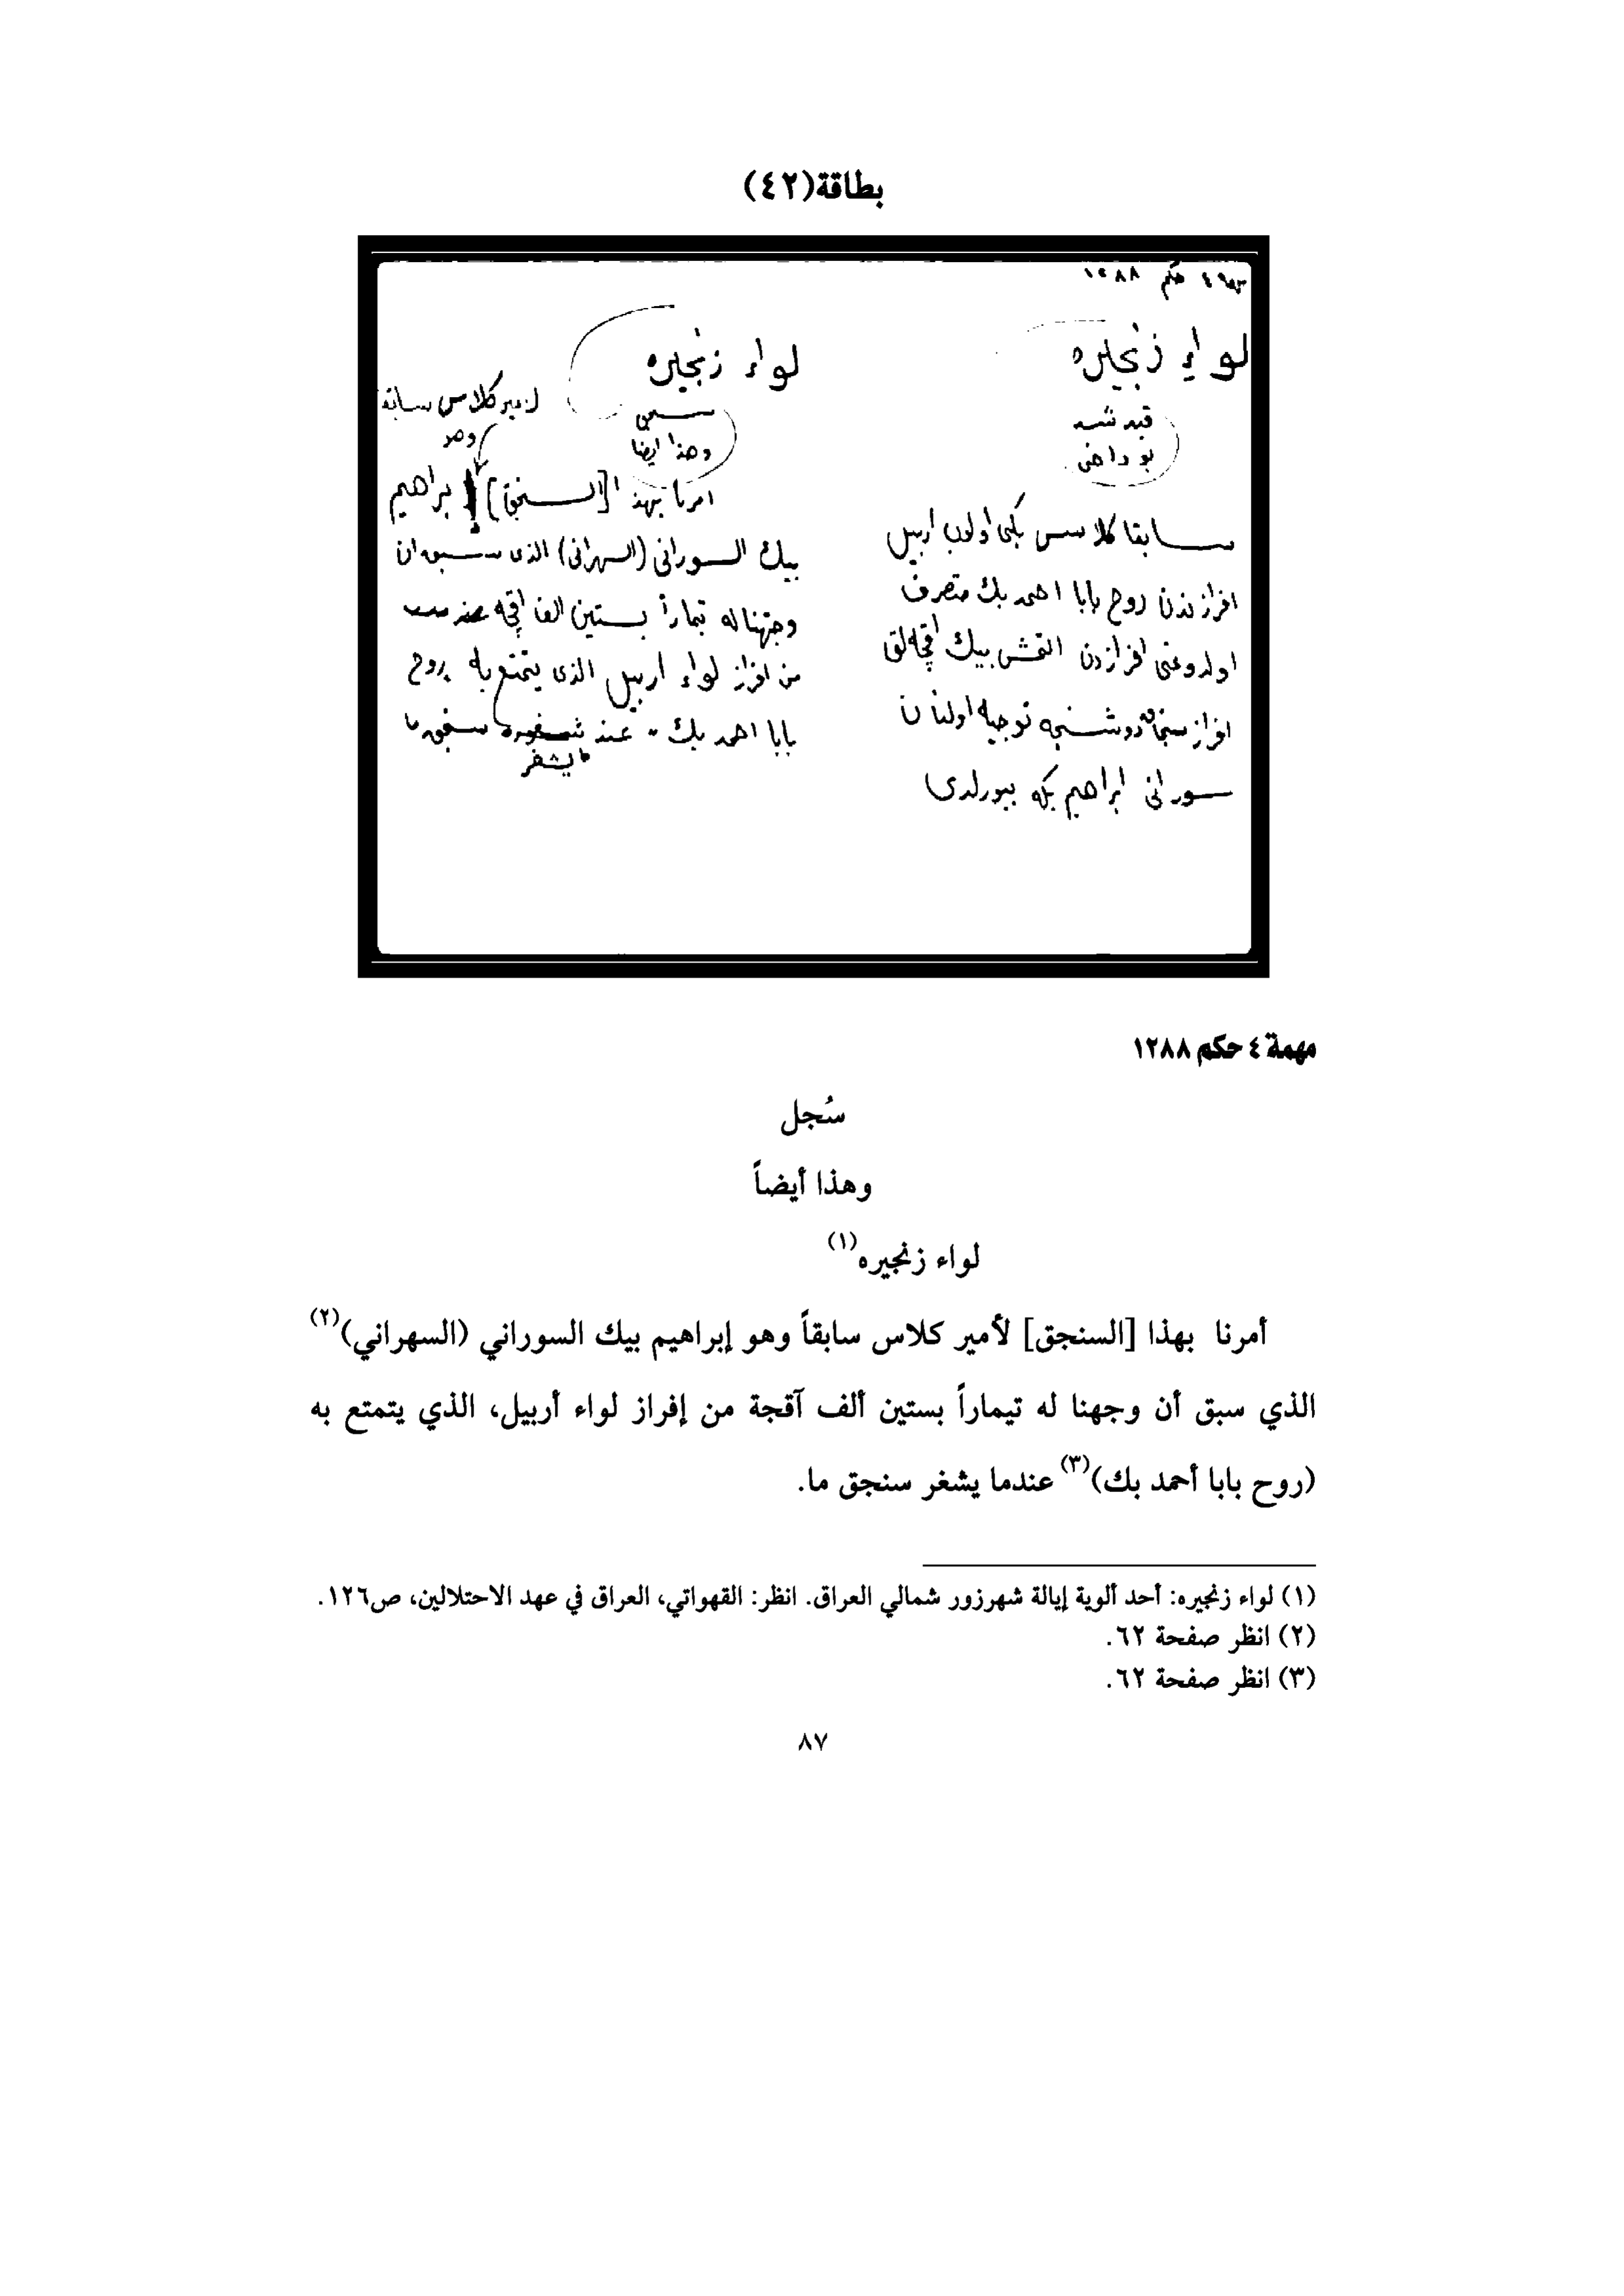 بطاقة(٤٢)
حكم ١٢٨٨
لواء زنجيره
قيد شد
بو داخى
سابقا كلاس بكى اولوب اربيل
افرازندن روح بابا احمد بك متصرف
اولدوغى افرازدن التمش بيك اقچه لق
افراز سنجاق دوشنجه توجيه اولنان
سورانى ابراهيم بكه بيورلدى
لواء زنجيره
وهذا ايضا
لامير كلاس سابقا
وهو
امرنا بهذا [السنجق] ابراهيم
بيك السورانى (السهرانى) الذى سبق ان
وجهنا له تيماراً بستين الف اقچه
من افراز لواء اربيل الذى يتمتع به روح
بابا احمد بك - عند سنجق ما
يشغر
مهمة ٤ حكم ١٢٨٨
سُجل
وهذا أيضاً
لواء زنجيره(١)
أمرنا بهذا [السنجق] لأمير كلاس سابقاً وهو إبراهيم بيك السوراني (السهراني)(٢)
الذي سبق أن وجهنا له تيماراً بستين ألف آقجة من إفراز لواء أربيل، الذي يتمتع به
(روح بابا أحمد بك)(٣) عندما يشغر سنجق ما.
(١) لواء زنجيره: أحد ألوية إيالة شهرزور شمالي العراق. انظر: القهواتي، العراق في عهد الاحتلالين، ص١٢٦.
(٢) انظر صفحة ٦٢.
(٣) انظر صفحة ٦٢.
٨٧